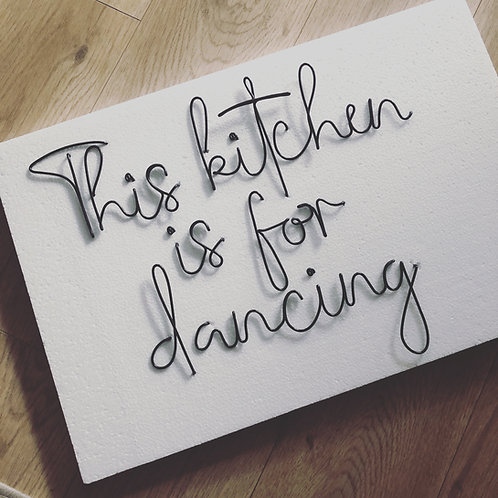 This kitchen
is for
dancing